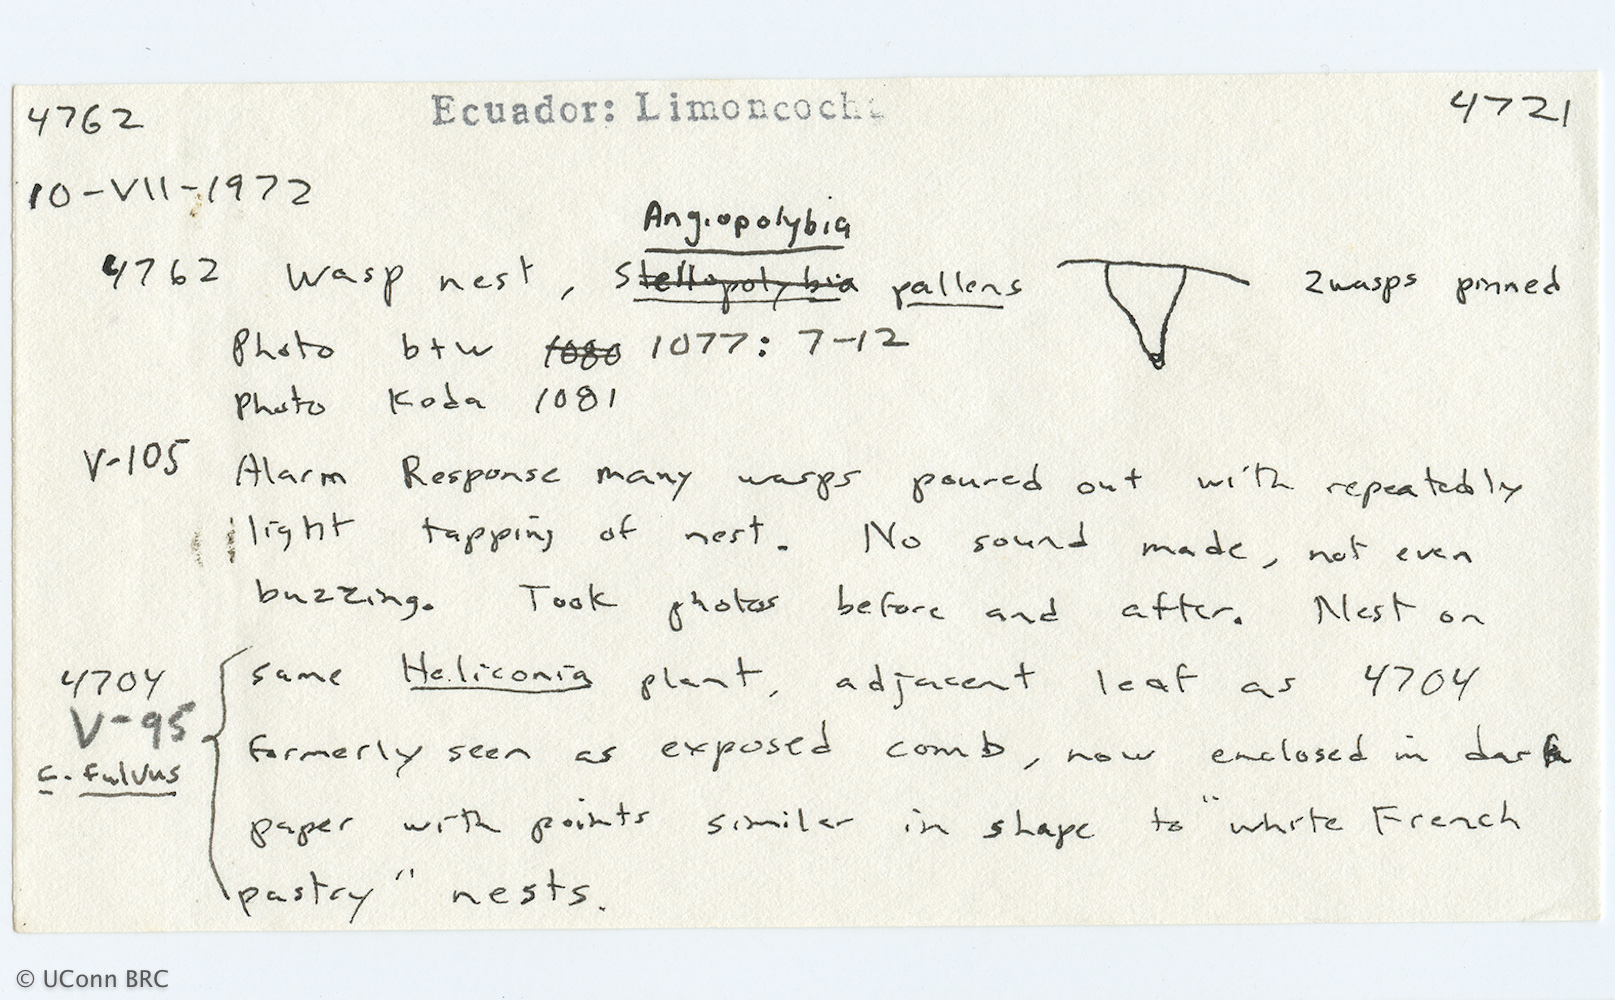 4762 Ecuador: Limoncocha 4721
10-VII-1972
Angiopolybia
4762 Wasp nest, Stellopolybia pallens 2 wasps pinned
Photo b+w 1080 1077: 7-12
Photo Koda 1081
V-105 Alarm Response many wasps poured out with repeatedly
light tapping of nest. No sound made, not even
buzzing. Took photos before and after. Nest on
4704 same Heliconia plant, adjacent leaf as 4704
V-95 formerly seen as exposed comb, now enclosed in dark
c. fulvus
paper with points similar in shape to "white French
pastry" nests.
© UConn BRC